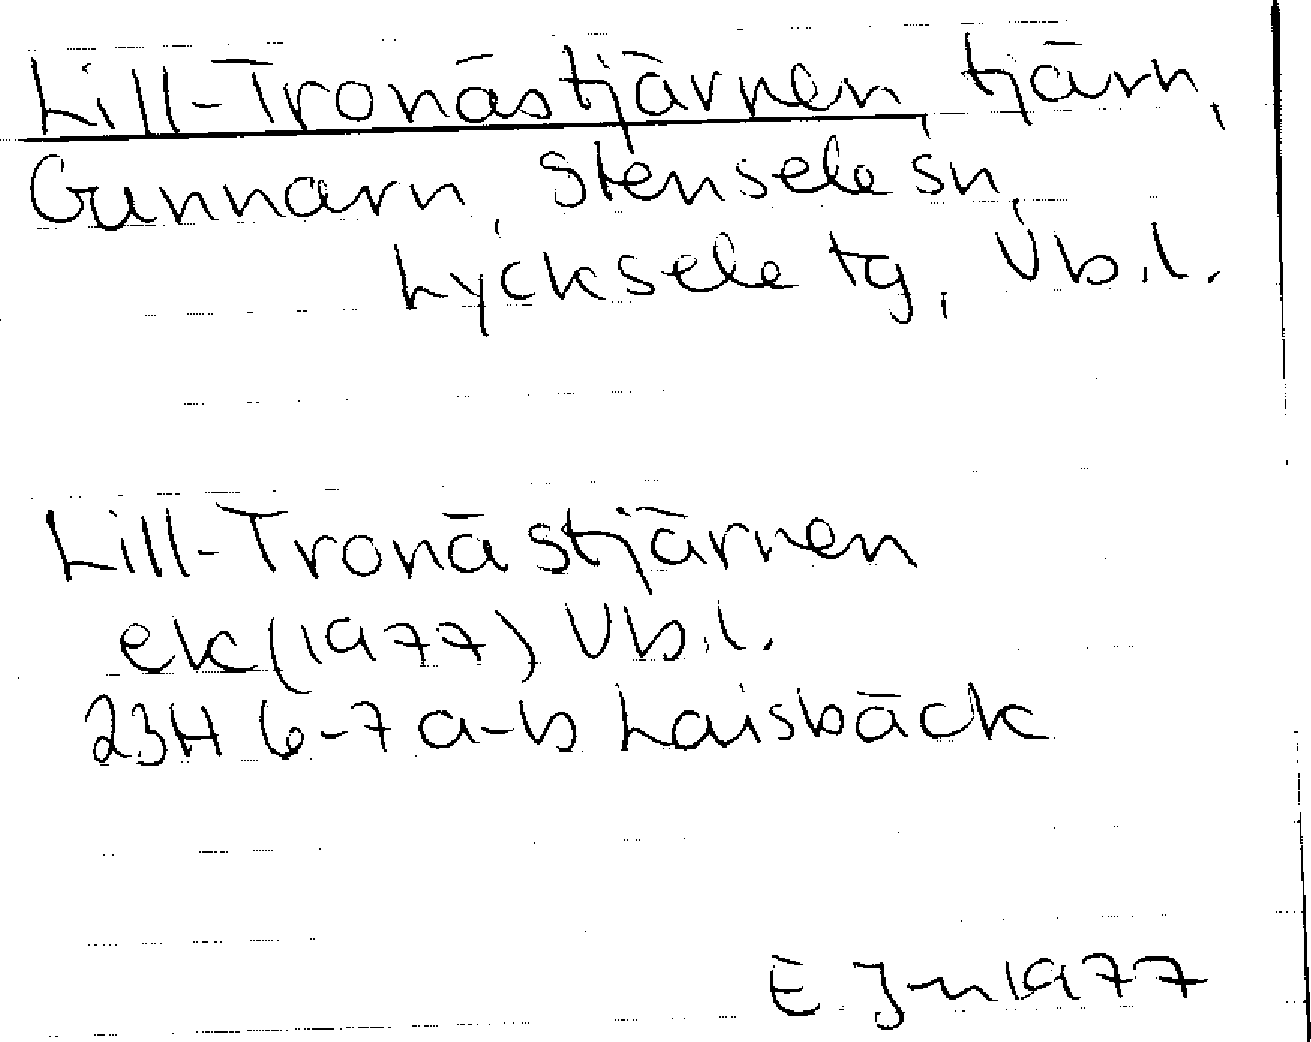 Lill-Tronåstjärnen tjärn,
Gunnarn, Stensele sn,
Lycksele tg, Vb.l.
Lill-Tronåstjärnen
ek (1977) Vb.l.
23H 6-7 a-b Laisbäck
E Jn 1977